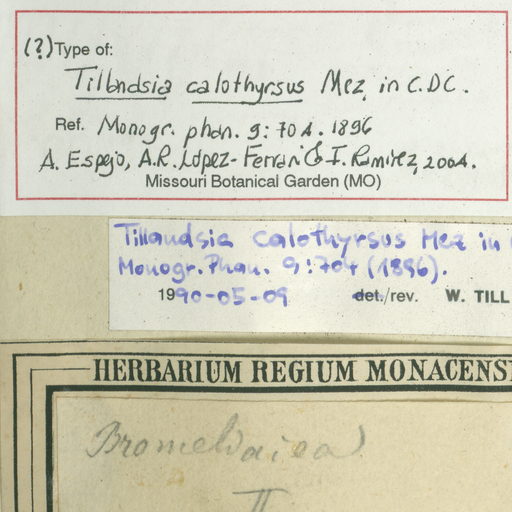 (?) Type of:
Tillandsia calothyrsus Mez, in C.DC.
Ref. Monogr. phan. 9: 704. 1896
A. Espejo, A.R. López-Ferrari & I. Ramírez, 2004.
Missouri Botanical Garden (MO)
Tillandsia calothyrsus Mez in
Monogr. Phan. 9:704 (1896).
1990-05-09 det./rev. W. TILL
HERBARIUM REGIUM MONACENS
Bromeliacea
II